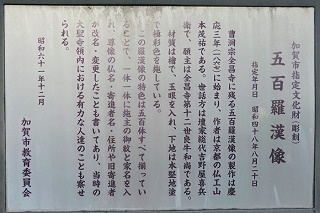 加賀市指定文化財(彫刻)
五百羅漢像
指定年月日 昭和四十八年八月二十日
曹洞宗全昌寺に残る五百羅漢像の製作は慶
応三年(一八六七)に始まり、作者は京都の仏工山
本茂祐である。世話方は壇家総代吉野屋喜兵
衛で、願主は全昌寺第十二世良牛和尚である。
材質は檜で、玉眼を入れ、下地は本堅地塗
で極彩色を施している。
この羅漢像の特色は五百体すべて揃ってい
ることで、一体一体に施主の御紋と家名を入
れ、尊像の仏名・寄進者名・住所や旧寄進者
か改名・変更したことも書いてあり、当時の
大聖寺領内における有力な人達のことも察せ
られる。
昭和六十一年十二月
加賀市教育委員会